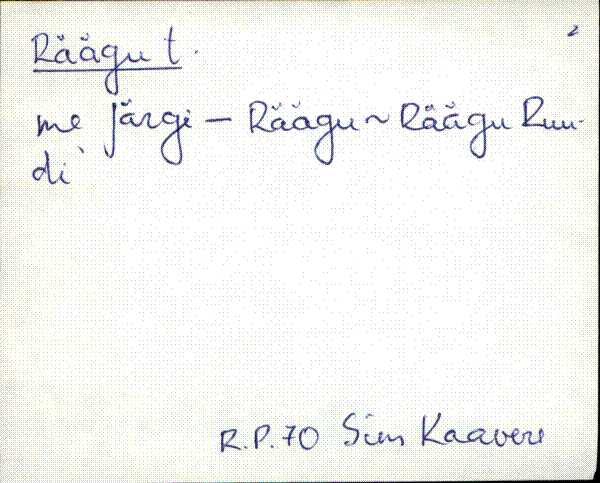 2
Räägu t.
me järgi — Räägu ~ Räägu Ruu-
di
R.P.70 Sim Kaavere